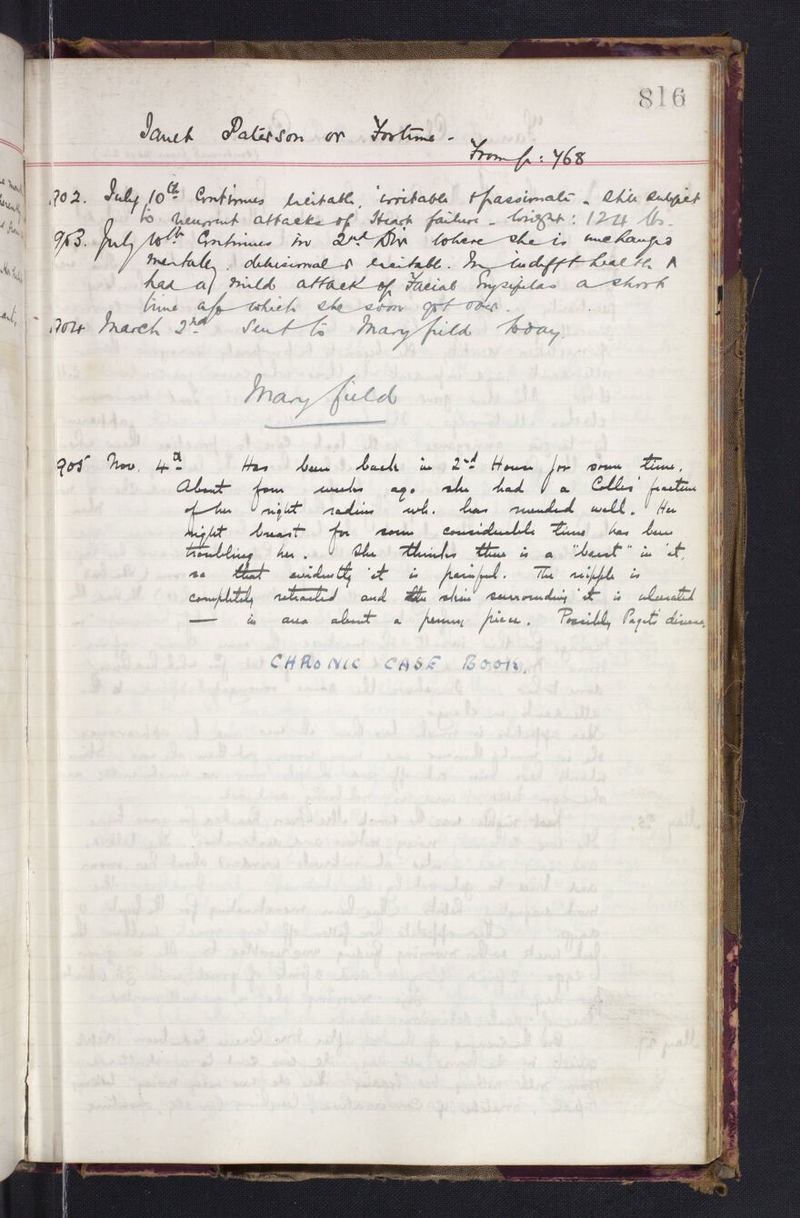 816
Janet Paterson or Fortune -
From p: 768
902. July 10th Continues excitable, irritable & passionate - still subject
to recurrent attacks of Heart failure - Weight: 124 lbs.
903. July 10th Continues in 2nd Div where she is unchanged
mentally, delusional & excitable. In indifft health &
had a mild attack of Facial Erysipelas a short
time ago which she soon got over.
1904 March 2nd Sent to Maryfield today.
Maryfield
905 Nov. 4th Has been back in 2nd House for some time.
About four weeks ago she had a Colles' fracture
of her right radius wh. has mended well. Her
right breast for some considerable time has been
troubling her. She thinks there is a "beast" in it,
so that evidently it is painful. The nipple is
completely retracted and the skin surrounding it is ulcerated
— in area about a penny piece. Possibly Paget's disease.
CHRONIC CASE BOOK.